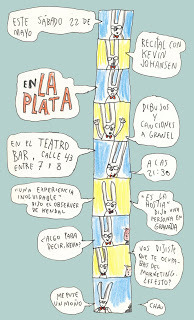 ESTE SÁBADO 22 DE
MAYO
RECITAL CON
KEVIN
JOHANSEN
EN LA
PLATA
DIBUJOS
Y
CANCIONES
A GRANEL
EN EL TEATRO
BAR, CALLE 43
ENTRE 7 Y 8
A LAS
21:30
"UNA EXPERIENCIA
INOLVIDABLE"
DIJO EL OBSERVER
DE KENDAL
"ES LA
HOSTIA"
DIJO UNA
PERSONA EN
GRANADA
¿ALGO PARA
DECIR, KEVIN?
VOS DIJISTE
QUE TE OCUPA-
BAS DEL
MARKETING,
CEFESTO!
ME PINTE
UN MONO
CHAU